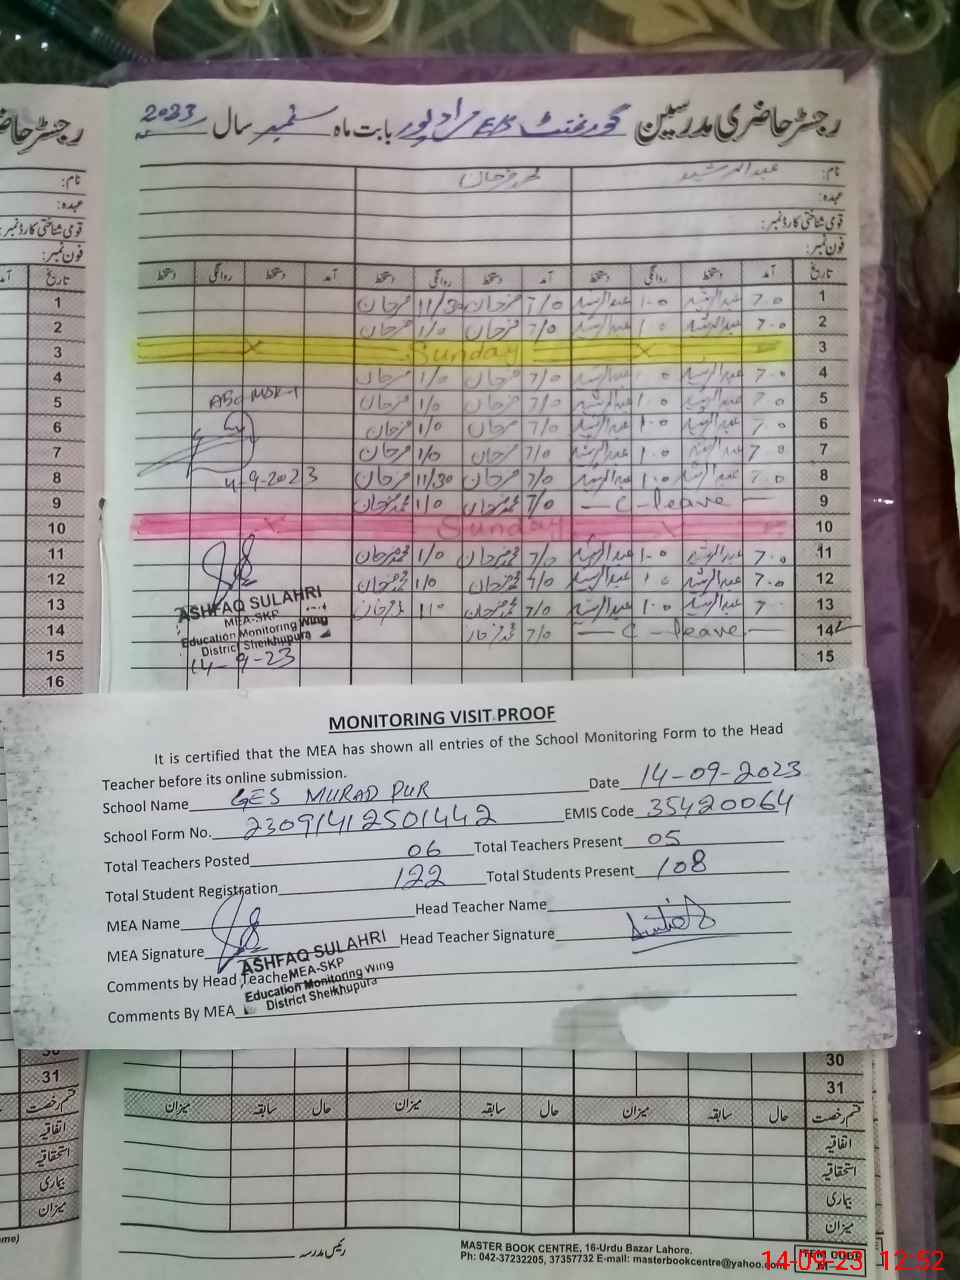 رجسٹر حاضری مدرسین گورنمنٹ مراد پور بابت ماہ ستمبر سال 2023
نام: عبدالرشید محمد فرحان
عہدہ:
قومی شناختی کارڈ نمبر:
فون نمبر:
تاریخ آمد دستخط روانگی دستخط آمد دستخط روانگی دستخط آمد دستخط روانگی دستخط
1 7-0 عبدالرشید 1-0 عبدالرشید 7/0 فرحان 11/30 فرحان
2 7-0 عبدالرشید 1-0 عبدالرشید 7/0 فرحان 1/0 فرحان
3 Sunday
4 7-0 عبدالرشید 1-0 عبدالرشید 7/0 فرحان 1/0 فرحان
5 7-0 عبدالرشید 1-0 عبدالرشید 7/0 فرحان 1/0 فرحان
6 7-0 عبدالرشید 1-0 عبدالرشید 7/0 فرحان 1/0 فرحان
7 7-0 عبدالرشید 1-0 عبدالرشید 7/0 فرحان 1/0 فرحان
8 7-0 عبدالرشید 1-0 عبدالرشید 7/0 فرحان 11/30 فرحان
4-9-2023
9 C-leave 7/0 محمد فرحان 1/0 محمد فرحان
10 Sunday
11 7-0 عبدالرشید 1-0 عبدالرشید 7/0 محمد فرحان 1/0 محمد فرحان
12 7-0 عبدالرشید 1-0 عبدالرشید 7/0 محمد فرحان 1/0 محمد فرحان
13 7 عبدالرشید 1-0 عبدالرشید 7/0 محمد فرحان 1/0 محمد فرحان
14 C-leave 7/0 محمد فرحان
15
16
ASHFAQ SULAHRI
MEA-SKP
Education Monitoring Wing
District Sheikhupura
14-9-23
MONITORING VISIT PROOF
It is certified that the MEA has shown all entries of the School Monitoring Form to the Head
Teacher before its online submission.
School Name GES MURAD PUR Date 14-09-2023
School Form No. 23091412501442 EMIS Code 35420064
Total Teachers Posted 06 Total Teachers Present 05
Total Student Registration 122 Total Students Present 108
MEA Name Head Teacher Name
MEA Signature Head Teacher Signature
Comments by Head Teacher
Comments By MEA
ASHFAQ SULAHRI
MEA-SKP
Education Monitoring Wing
District Sheikhupura
30
31
قسم رخصت حال سابقہ میزان حال سابقہ میزان حال سابقہ میزان
اتفاقیہ
استحقاقیہ
بیماری
میزان
رئیس مدرسہ
MASTER BOOK CENTRE, 16-Urdu Bazar Lahore.
Ph: 042-37232205, 37357732 E-mail: masterbookcentre@yahoo.com
ITEM CODE
14-09-23 12:52